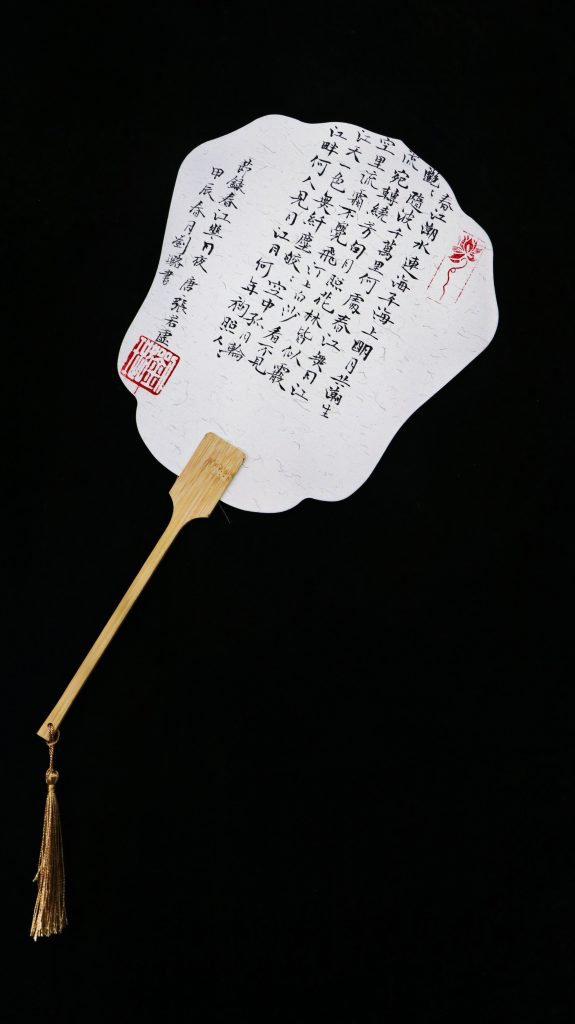 春江潮水連海平海上明月共潮生
灩〻隨波千萬里何處春江無月江
流宛轉繞芳甸月照花林皆似霰
空里流霜不覺飛汀上白沙看不見
江天一色無纖塵皎〻空中孤月輪
江畔何人見月江月何年初照人
節錄春江花月夜 唐 張若虛
甲辰春月劉璐書